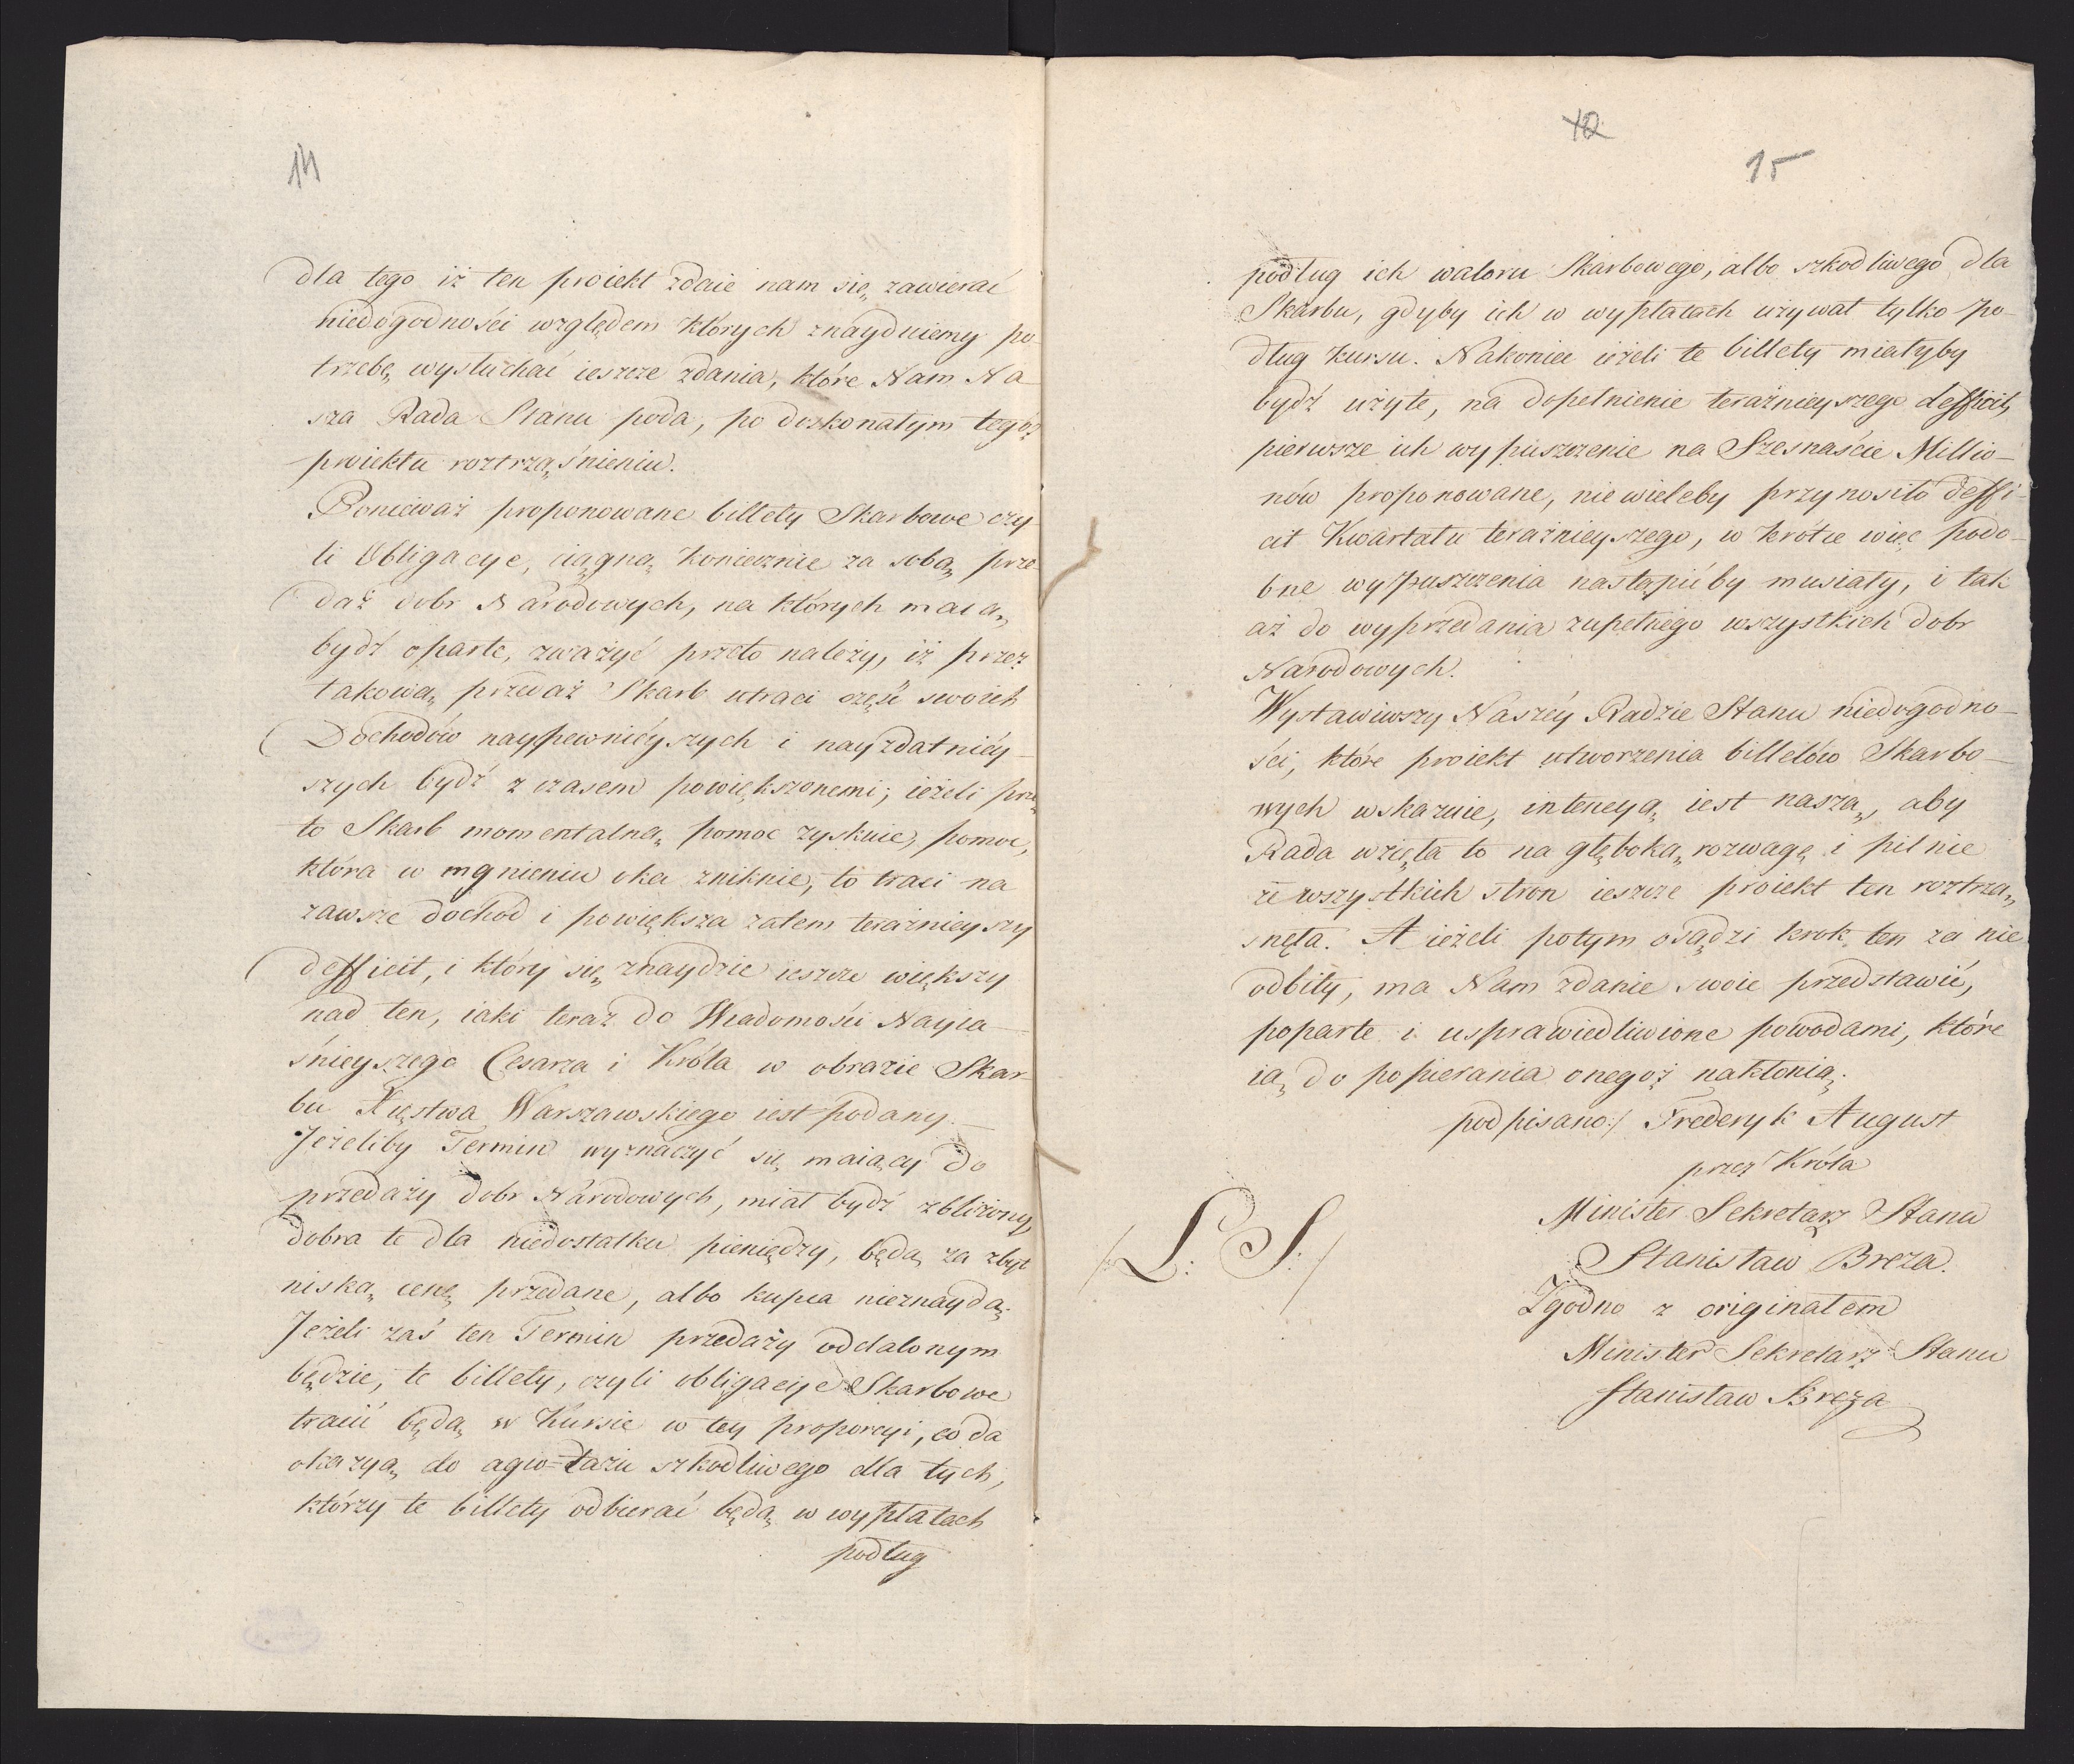 14
dla tego iż ten proiekt zdaie nam się zawierać
niedogodności względem których znayduiemy po-
trzebę wysłuchać ieszcze zdania, które Nam Na-
sza Rada Stanu poda, po doskonałym tegoż
proiektu roztrząśnieniu.
Ponieważ proponowane billety Skarbowe czy-
li Obligacye, ciągną koniecznie za sobą prze-
daż dobr Narodowych, na których maią
bydź oparte, zważyć przeto należy, iż przez
takową przedaż Skarb utraci część swoich
Dochodów naypewnieyszych i nayzdatniey-
szych bydź z czasem powiększonemi; ieżeli prze
to Skarb momentalną pomoc zyskuie, pomoc,
która w mgnieniu oka zniknie, to traci na
zawsze dochód i powiększa zatem teraźnieyszy
defficit, i który się znaydzie ieszcze większy
nad ten, iaki teraz do Wiadomości Nayia-
śnieyszego Cesarza i Króla w obrazie Skar-
bu Xięstwa Warszawskiego iest podany.
Jeżeliby Termin wyznaczyć się maiący do
przedaży dobr Narodowych, miał bydź zbliżony,
dobra te dla niedostatku pieniędzy, będą za zbyt
niską cenę przedane, albo kupca nieznaydą.
Jeżeli zaś ten Termin przedaży oddalonym
będzie, te billety, czyli obligacye Skarbowe
tracić będą w Kursie w tey proporcyi, co da
okazyą do agio=tażu szkodliwego dla tych,
którzy te billety odbierać będą w wypłatach
podług
12
15
podług ich waloru Skarbowego, albo szkodliwego dla
Skarbu, gdyby ich w wypłatach używał tylko po-
dług kursu. Nakoniec ieżeli te billety miałyby
bydź użyte, na dopełnienie teraźnieyszego deficit,
pierwsze ich wypuszczenie na Szesnaście Millio-
nów proponowane, niewieleby przynosiło deffi-
cit Kwartału teraźnieyszego, w krótce więc podo-
bne wypuszczenia nastąpićby musiały, i tak
aż do wyprzedania zupełnego wszystkich dobr
Narodowych.
Wystawiwszy Naszéy Radzie Stanu niedogodno-
ści, które proiekt utworzenia billetów Skarbo-
wych wskazuie, intencyą iest naszą, aby
Rada wzięła to na głęboką rozwagę i pilnie
ze wszystkich stron ieszcze proiekt ten roztrzą-
snęła. A ieżeli potym osądzi krok ten za nie
odbity, ma Nam zdanie swoie przedstawić,
poparte i usprawiedliwione powodami, które
ią do popierania onegoż nakłonią.
podpisano:/ Frederyk August
przez Króla
Minister Sekretarz Stanu
/:L: S:/
Stanisław Breza.
Zgodno z originałem
Minister Sekretarz Stanu
Stanisław Breza